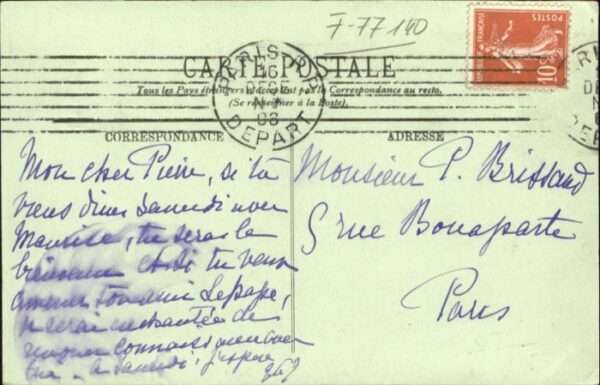 7-77140
POSTES
10
PARIS
DEPART
CARTE POSTALE
Tous les Pays étrangers n'acceptent pas la Correspondance au recto.
(Se renseigner à la Poste).
CORRESPONDANCE
Mon cher Pierre, si tu
viens diner samedi avec
Maurice, tu seras le
bienvenu et si tu veux
amener ton ami Lepape,
je serai enchantée de
connaissance avec
à samedi, j'espère
ADRESSE
Monsieur P. Brissaud
5 rue Bonaparte
Paris